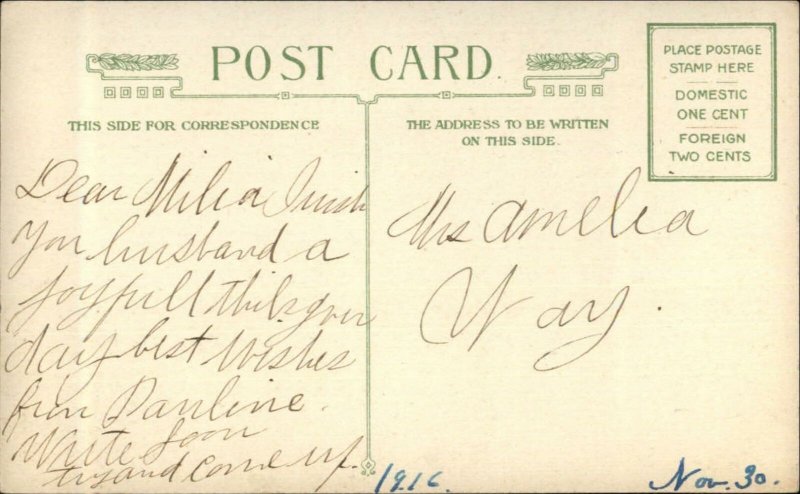 POST CARD
THIS SIDE FOR CORRESPONDENCE
THE ADDRESS TO BE WRITTEN
ON THIS SIDE.
PLACE POSTAGE
STAMP HERE
DOMESTIC
ONE CENT
FOREIGN
TWO CENTS
Dear Milia
you husband a
joyfull
day best Wishes
from Pauline.
Write Soon
try and Come up.
Mrs Amelia
Way.
1916.
Nov. 30.